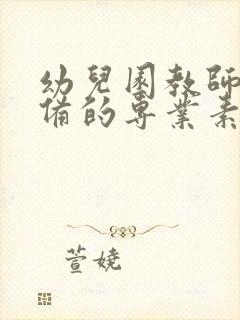 幼兒園教師
備的專業素
萱嬈